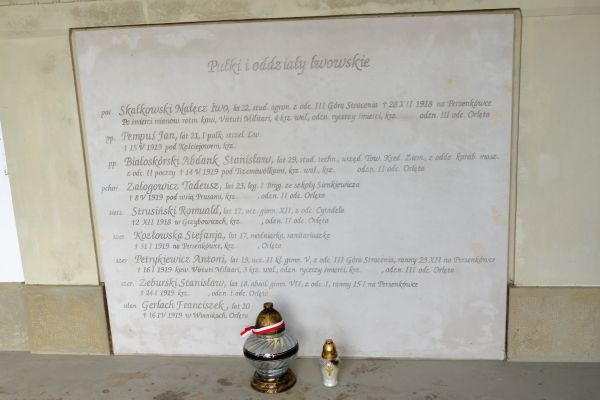 Pułki i oddziały lwowskie
por. Skałkowski Nałęcz Iwo, lat 22, stud. agron. z odc. III Góra Stracenia † 28 XII 1918 na Persenkówce
Po śmierci mianow. rotm. kaw. Virtuti Militari, 4 krz. wal., odzn. rycerzy śmierci, krz. odzn. III odc. Orlęta
pp. Pempuś Jan, lat 21, 1 pułk. strzel. Lw.
† 15 V 1919 pod Kościejowem, krz.
pp. Białoskórski Abdank Stanisław, lat 29, stud. techn., urzęd. Tow. Kred. Ziem., z oddz. karab. masz.
z odc. II poczty † 14 V 1919 pod wal., krz. odzn. II odc. Orlęta
pchor. Załogowicz Tadeusz, lat 23, leg. 1 Bryg. ze szkoły Sienkiewicza
† 8 V 1919 pod wsią Prusami, krz. , odzn. II odc. Orlęta
sierż. Strusiński Romuald, lat 17, ucz. gimn. XII, z odc. Cytadela
† 2 XII 1918 w Grzybowicach, krz. , odzn. II odc. Orlęta
szer. Kozłowska Stefanja, lat 17, modniarka, sanitariuszka
† 31 I 1919 na Persenkówce, krz. , Orlęta
szer. Petrykiewicz Antoni, lat 13, ucz. II kl. gimn. V, z odc. III Góra Stracenia, ranny 23 XII na Persenkówce
† 16 I 1919 kaw. Virtuti Militari, 3 krz. wal., odzn. rycerzy śmierci, krz. , odzn. III odc. Orlęta
szer. Żeburski Stanisław, lat 18, absol. gimn. VII, z odc. I, ranny 15 I na Persenkówce
† 24 I 1919 krz. , odzn. I odc. Orlęta
ułan Gerlach Franciszek, lat 20
† 16 IV 1919 w Winnikach, Orlęta